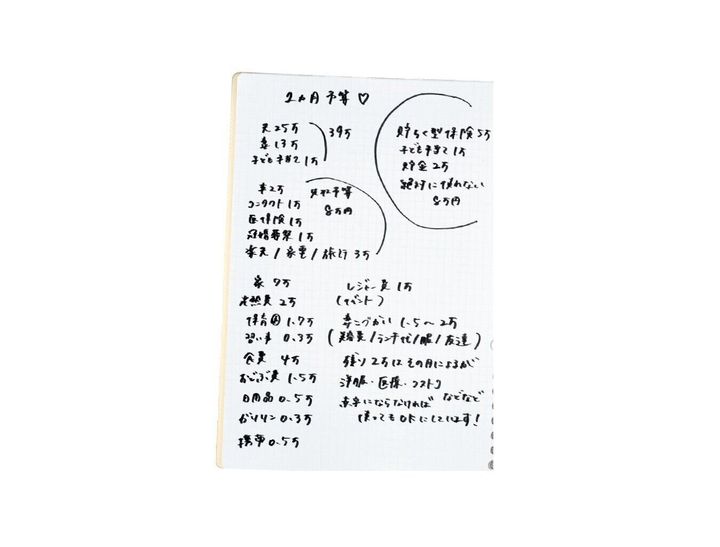 1ヵ月予算♡
夫25万
妻13万
子ども手当て1万
39万
貯ちく型保険5万
子ども手当て1万
貯金2万
絶対に使わない
8万円
車2万
コンタクト1万
医保険1万
冠婚葬祭1万
家具/家電/旅行3万
予算
8万円
家9万
光熱費2万
保育園1.7万
習い事0.3万
食費4万
おむつ費1.5万
日用品0.5万
ガソリン0.3万
携帯0.5万
レジャー費1万
(イベント)
妻こづかい1.5〜2万
(美容費/ランチ代/服/友達)
残り2万はその月によるが
洋服・医療・コストコ
などなど
赤字にならなければ
使ってもOKにしています!